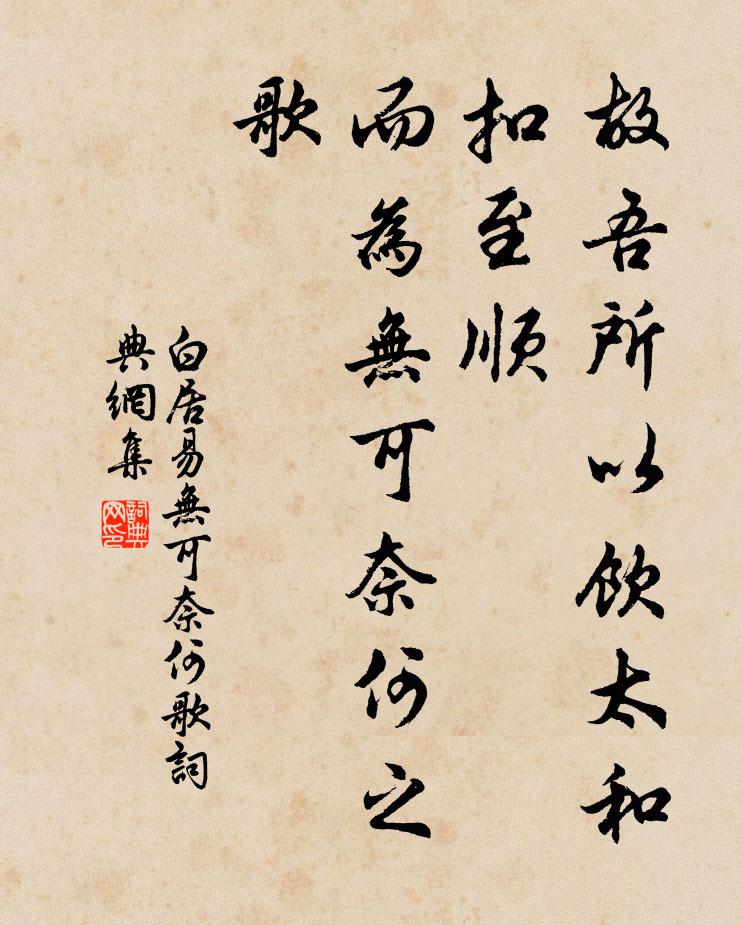 故吾所以飲太和
扣至順
而為無可奈何之
歌
白居易無可奈何歌詞
典網集
詞典
网印